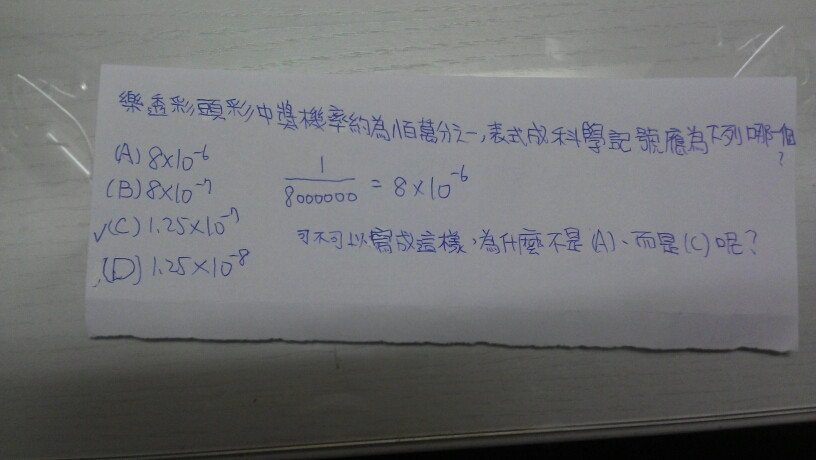 樂透彩頭彩中獎機率約為八百萬分之一,表式成科學記號應為下列哪一個?
(A) 8×10⁻⁶
(B) 8×10⁻⁷
✓(C) 1.25×10⁻⁷
(D) 1.25×10⁻⁸
1/8000000 = 8×10⁻⁶
可不可以寫成這樣,為什麼不是(A)、而是(C)呢?